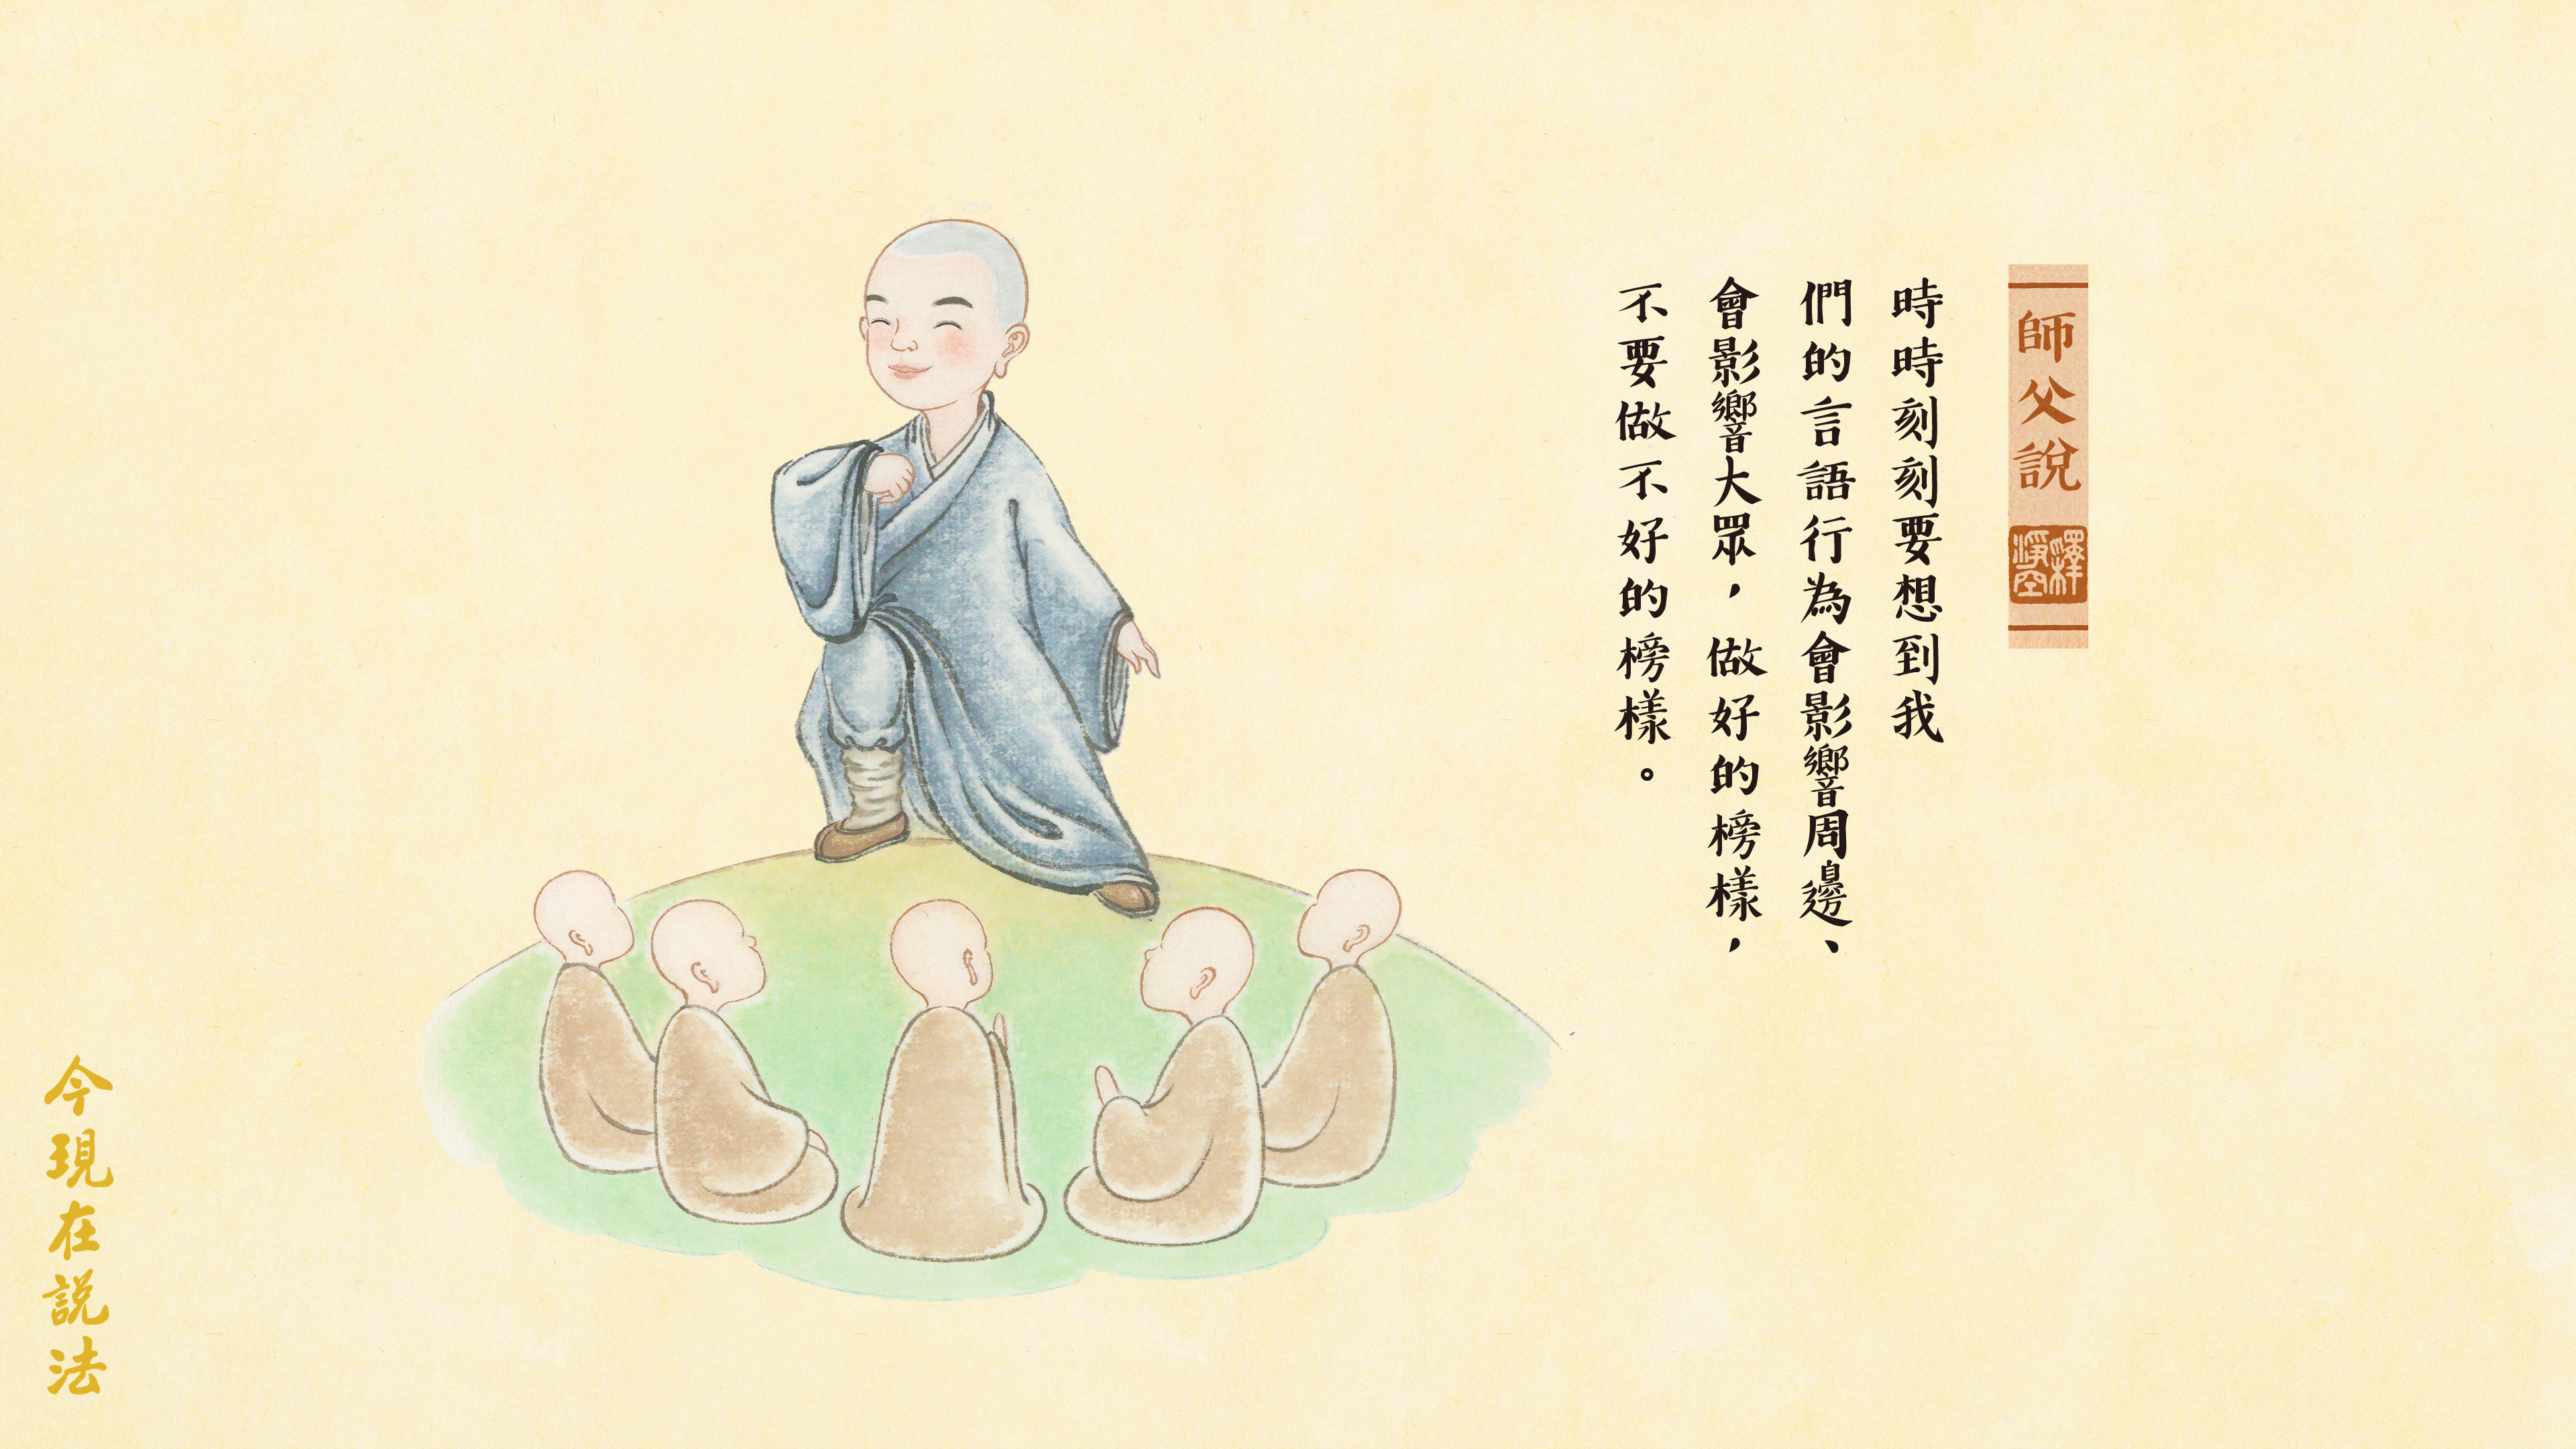 師父說
釋淨空
時時刻刻要想到我
們的言語行為會影響周邊、
會影響大眾，做好的榜樣，
不要做不好的榜樣。
今現在説法